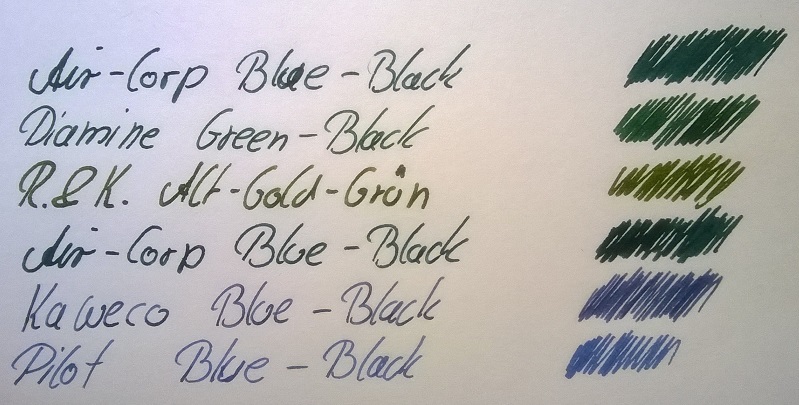 Air-Corp Blue-Black
Diamine Green-Black
R.&K. Alt-Gold-Grün
Air-Corp Blue-Black
Kaweco Blue-Black
Pilot Blue-Black